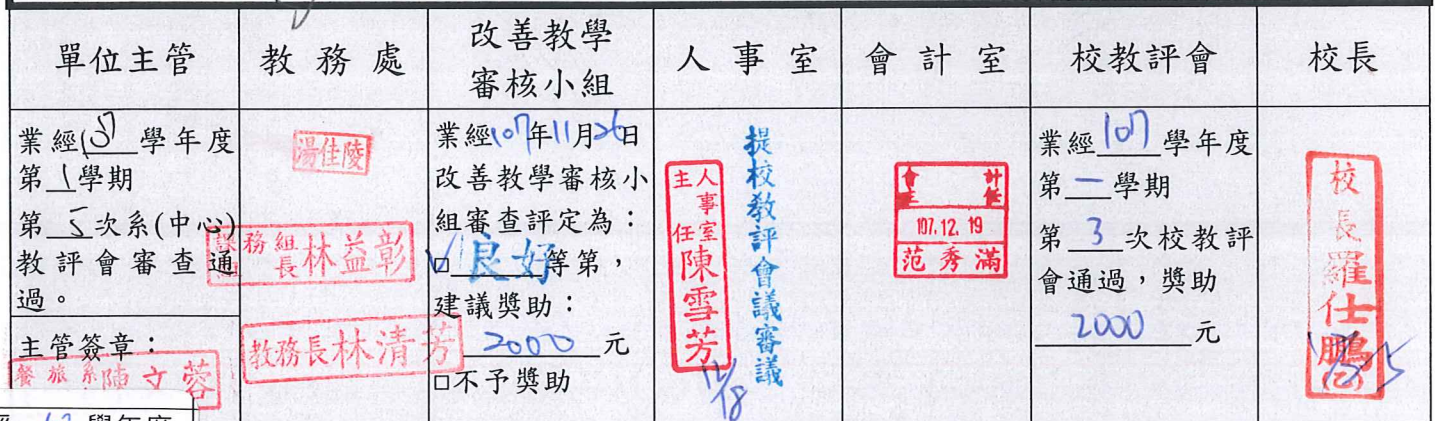 單位主管
教務處
改善教學
審核小組
人事室
會計室
校教評會
校長
業經107學年度
第1學期
第5次系(中心)
教評會審查通
過。
主管簽章：
餐旅系 陳文蓉
湯佳陵
課務組
組長 林益彰
教務長林清芳
業經107年11月26日
改善教學審核小
組審查評定為：
☑良好等第，
建議獎助：
2000元
□不予獎助
人事室
主任 陳雪芳
12/18
提校教評會議審議
會計
主任
107.12.19
范秀滿
業經107學年度
第一學期
第3次校教評
會通過，獎助
2000元
校長羅仕鵬(乙)
學年度